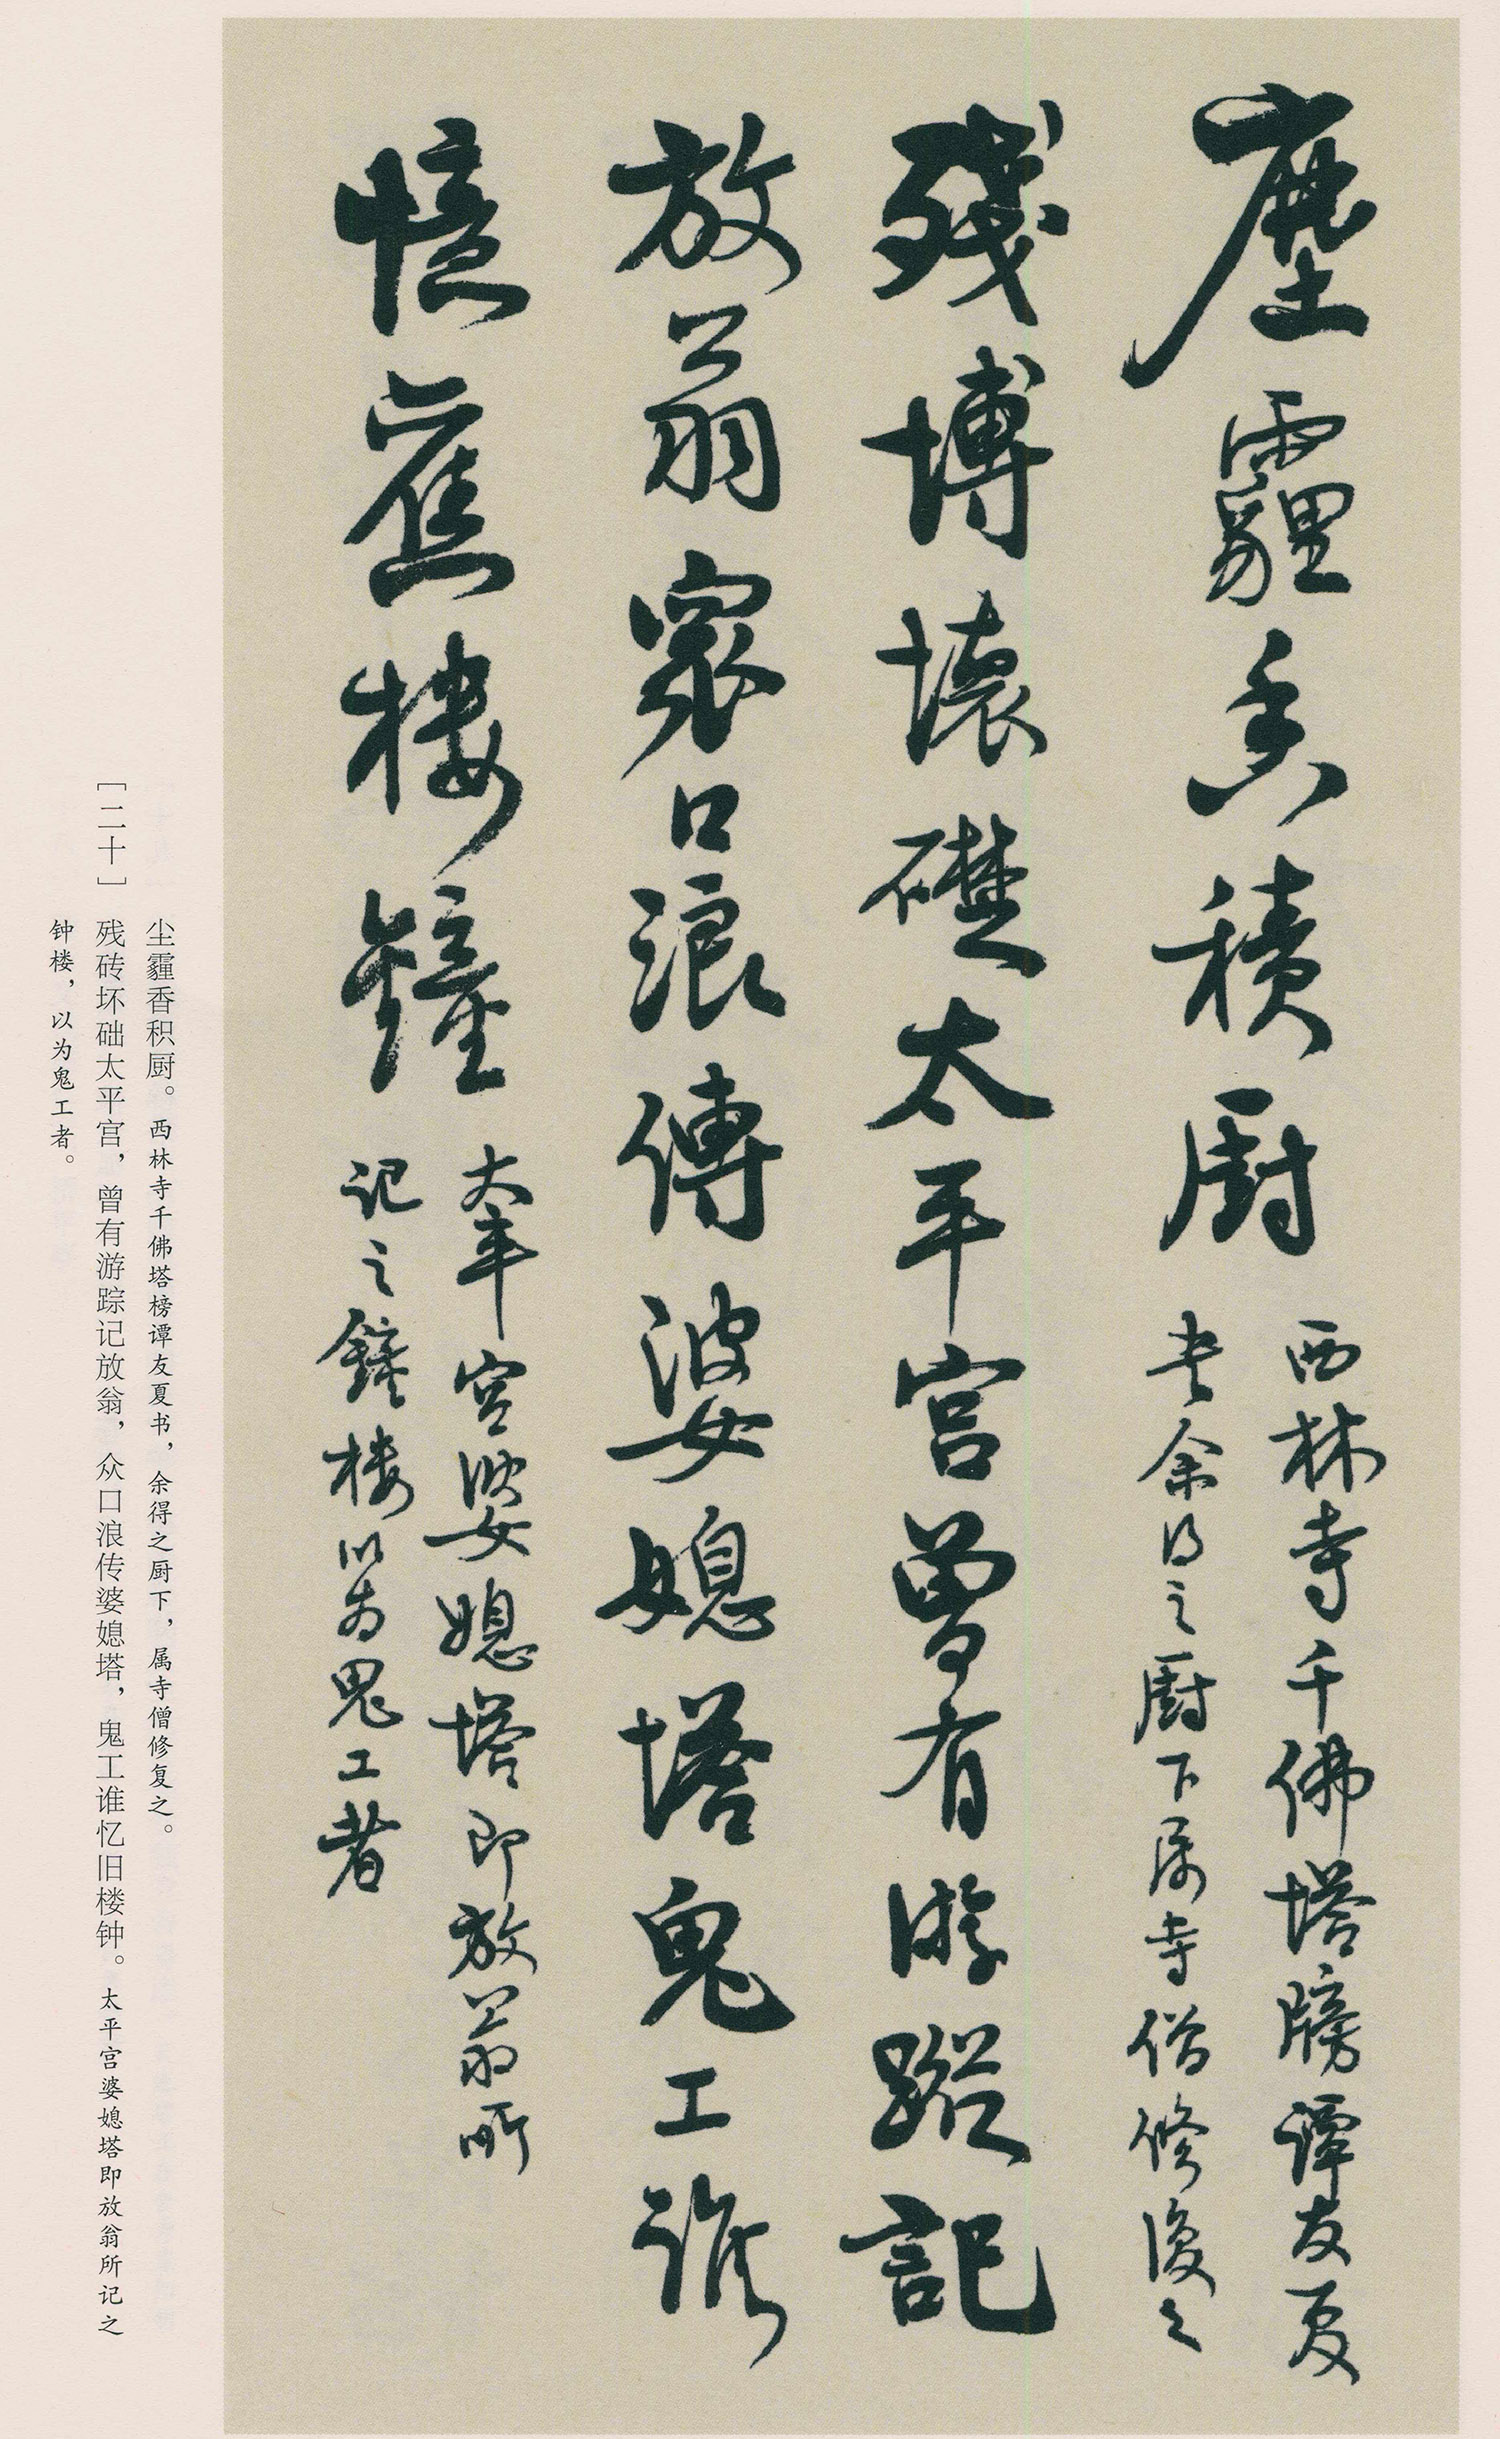 塵霾香積厨
西林寺千佛塔牓譚友夏
書余得之厨下属寺僧修復之
殘塼壞礎太平宫曾有游蹤記
放翁衆口浪傳婆媳塔鬼工誰
憶舊樓鐘
太平宫婆媳塔即放翁所
記之鐘樓以為鬼工者
尘霾香积厨。西林寺千佛塔榜谭友夏书，余得之厨下，属寺僧修复之。
［二十］残砖坏础太平宫，曾有游踪记放翁，众口浪传婆媳塔，鬼工谁忆旧楼钟。太平宫婆媳塔即放翁所记之
钟楼，以为鬼工者。